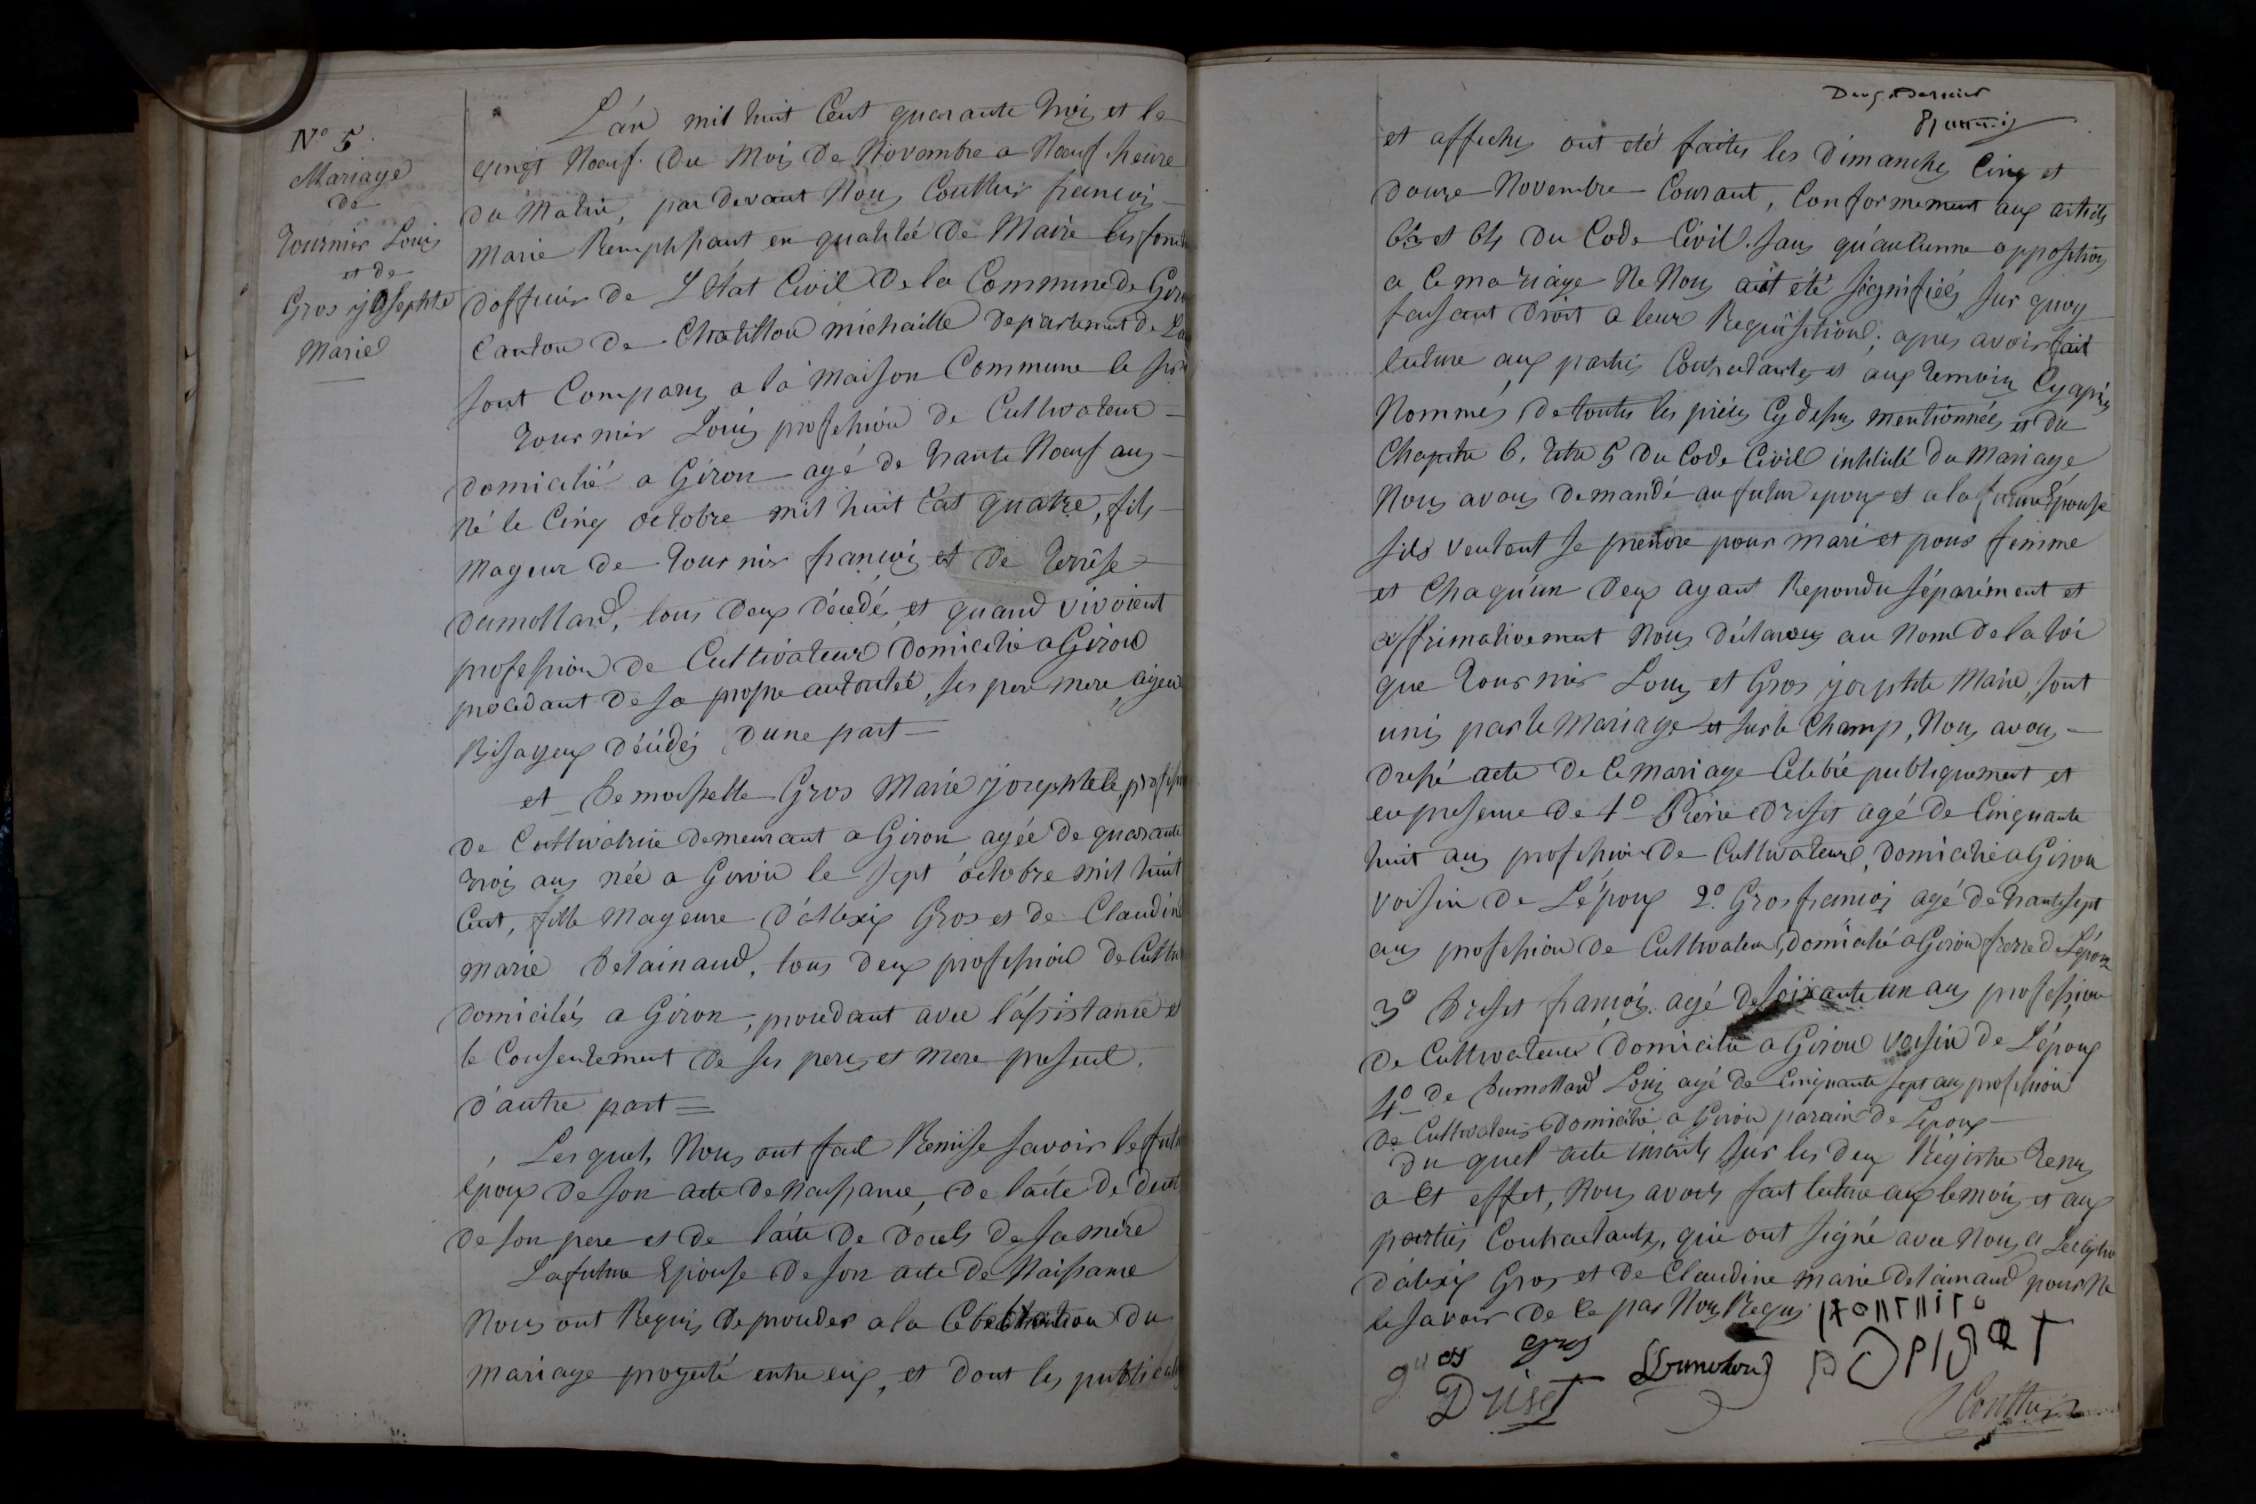 N° 5.
Mariage
de
Tournier Louis
et de
Gros josephte
Marie
L'an mil huit Cent quarante trois et le
vingt Nœuf du Mois de Novembre a Nœuf heure
du Matin, par devant Nous Couttier françois
Marie Remplissant en qualité de Maire les fonct
d'officier de L'Etat Civil De la Commune de Giron
Canton de Chatillon michaille departement de Lain
sont Comparus a la Maison Commune le
Tournier Louis profession de Cultivateur
domicilié a Giron agé de trante Nœuf ans
Né le Cinq octobre mil huit Cat quatre, fils
Mageur de Tournier françois et de Terrèse
Dumollard, tous deux décedé, et quand vivoient
profession de Cultivateur domicilié a Giron
procedant de sa propre autorité, ses pere mere, ayeux
Bisayeux décédés d'une part
et Demoiselle Gros Marie josephte profess
de Cultivatrice demeurant a Giron agée de quarante
trois ans née a Giron le sept octobre mil huit
Cent, fille Mageure d'Alexis Gros et de Claudine
marie Delainaud, tous deux profession de Cultiv
domiciliés a Giron, procedant avec l'assistance et
le Consentement de ses pere et mere present,
d'autre part
Les quels Nous ont fait Remise savoir le futur
époux de son acte de Naissance, de l'acte de decet
de son pere et de l'acte de decets de sa mére
La future Epouse de son acte de Naissance
Nous ont Requis de proceder a la Celebration du
mariage projeté entre eux, et dont les publications
Deux
et affiches ont eté faites les dimanches Cinq et
douze Novembre Courant, Conformement aux articles
63 et 64 du Code Civil. sans qu'aucunne opposition
a Ce mariage Ne Nous ait été signifiés sur quoy
faisant droit a leur Requisition; apres avoir fait
lecture aux parties Contractantes et aux temoin Cy après
Nommés de toutes les pièces Cy dessus mentionnées et du
Chapitre 6. titre 5 du Code Civil intitulé du Mariage
Nous avons demandé au futur epoux et a la future Epouse
sils veulent se prendre pour mari et pour femme
et Chaqu'un deux ayant Repondu séparément et
affirmativement Nous déclarons au Nom de la loi
que Tournier Louis et Gros josephte Marie, sont
unis par le Mariage et sur le Champ, Nous avons
dressé acte de Ce mariage Celebré publiquement et
en presence de 1° Pierre Driset agé de Cinquante
huit ans profession de Cultivateur, domicilié a Giron
voisin de L'époux 2° Gros françois agé de trante sept
ans profession de Cultivateur, domicilié a Giron frere de L'épouse
3° Driset françois agé de soixante un ans profession
de Cultivateur domicilié a Giron voisin de L'époux
4° de Dumollard Louis agé de Cinquante sept ans profession
de Cultivateur domicilié a Giron parain de L'epoux
du quel acte inscrits sur les deux Régistre Tenus
a Cet effet, Nous avons fait lecture aux temoins et aux
parties Contractants, qui ont signé avec Nous a L'exeption
d'alexis Gros et de Claudine marie Delainaud pour Ne
le savoir de Ce par Nous Requis
gros gros
Driset
Driset
Couttier